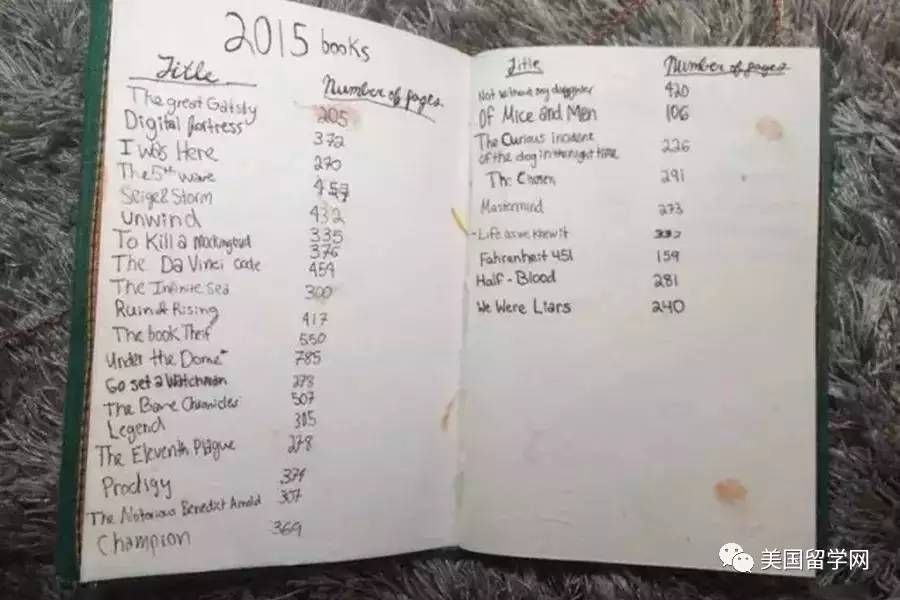 2015 books
Title Number of pages
The great Gatsby 205
Digital fortress 372
I was Here 270
The 5th wave
Seige & Storm 432
Unwind 335
To Kill a Mockingbird 376
The Da Vinci Code 454
The Infinite Sea 300
Ruin & Rising 417
The book Theif 550
Under the Dome 785
Go set a Watchman 278
The Bane Chronicles 507
Legend 305
The Eleventh Plague 278
Prodigy 374
The Notorious Benedict Arnold 307
Champion 369
Title Number of pages
Not without my daughter 420
Of Mice and Men 106
The Curious incident
of the dog in the night time 226
The Chosen 291
Mastermind 273
-Life as we knew it 337
Fahrenheit 451 159
Half-Blood 281
We Were Liars 240
美国留学网